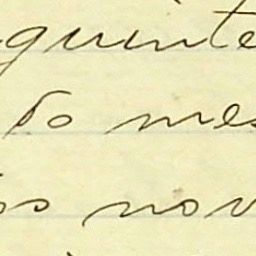 guinte
do mes
os nov